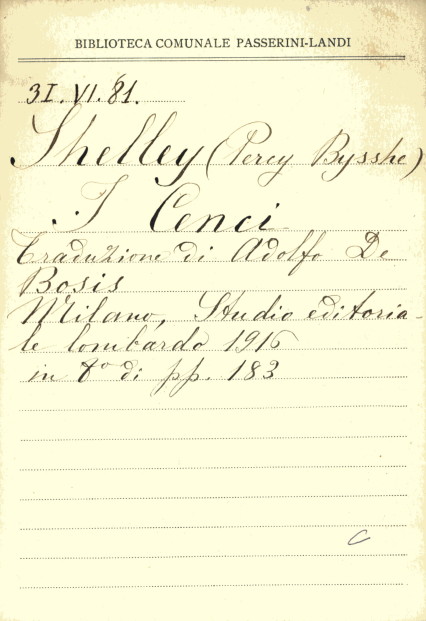 BIBLIOTECA COMUNALE PASSERINI-LANDI
3I.VI.81.
Shelley (Percy Bysshe)
I Cenci
Traduzione di Adolfo De
Bosis
Milano, Studio editoria-
le lombardo 1916
in 8° di pp. 183
C